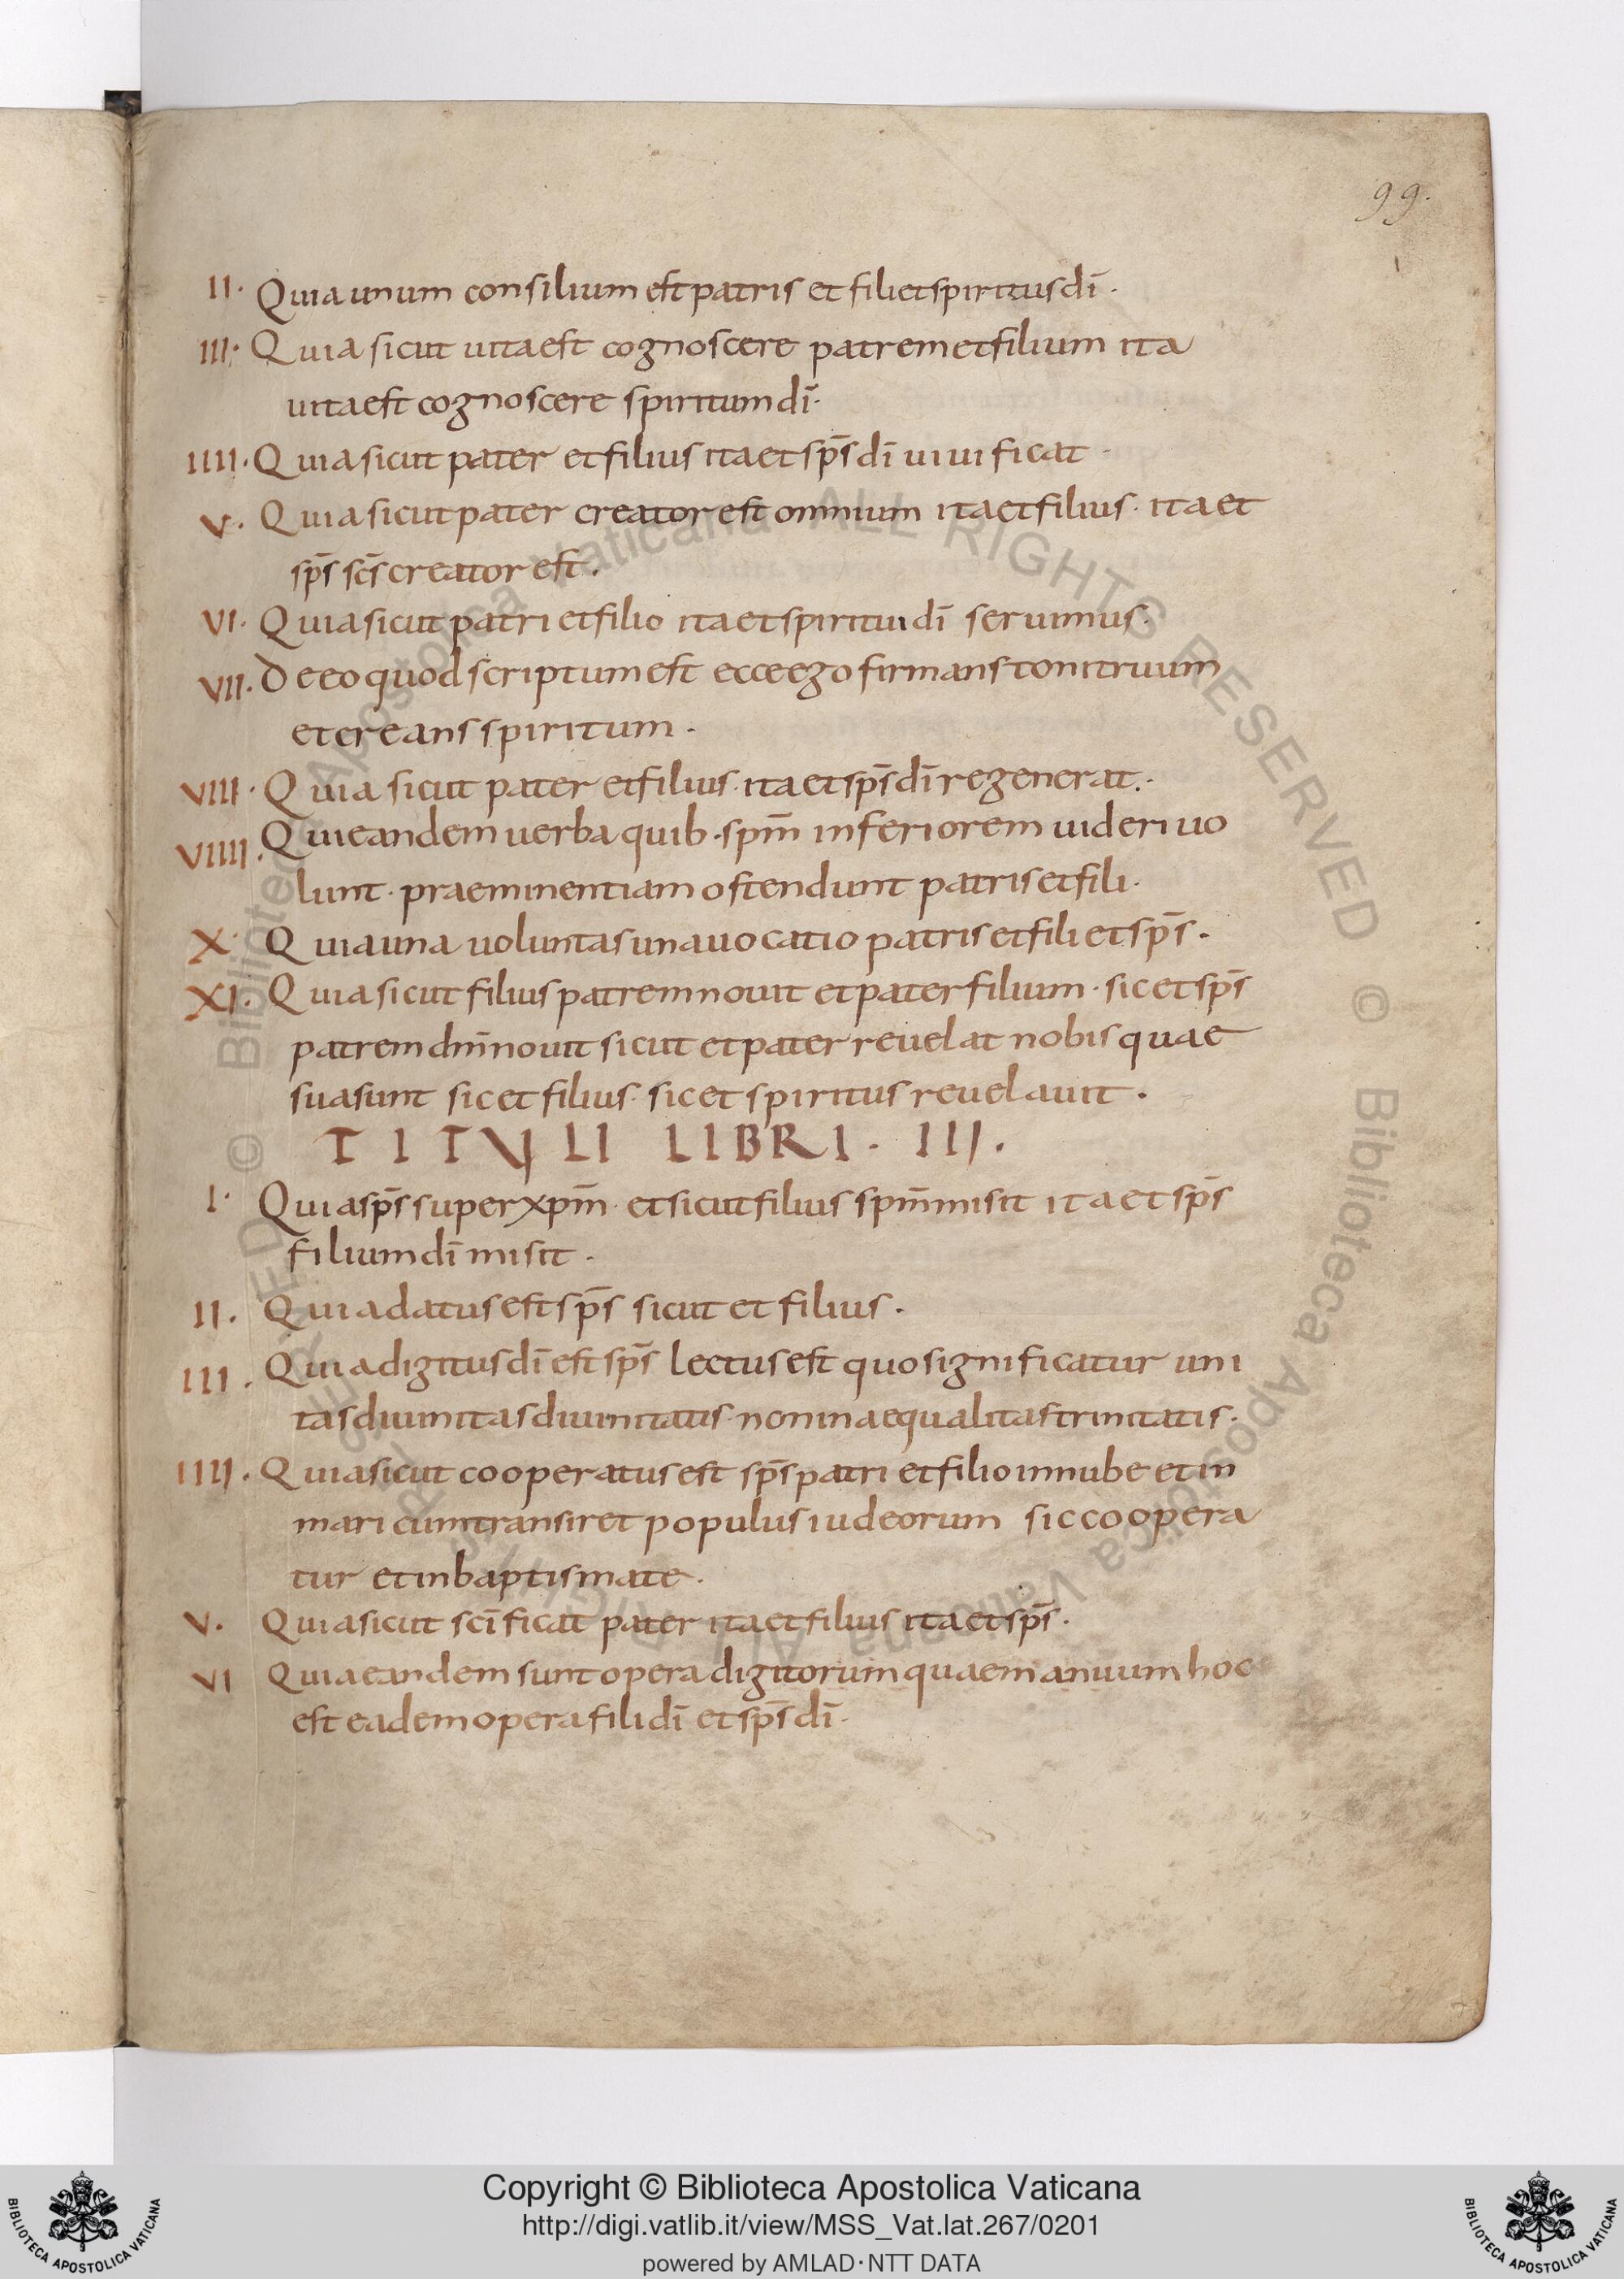 99.
II. Quia unum consilium est patris et fili et spiritus dī.
III. Quia sicut uita est cognoscere patrem et filium ita
uita est cognoscere spiritum dī.
IIII. Quia sicut pater et filius ita et sp̄s dī uiuificat.
V. Quia sicut pater creator est omnium ita et filius. ita et
sp̄s sc̄s creator est.
VI. Quia sicut patri et filio ita et spiritui dī seruimus.
VII. De eo quod scriptum est ecce ego firmans tonitruum
et creans spiritum.
VIII. Quia sicut pater et filius. ita et sp̄s dī regenerat.
VIIII. Qui eandem uerba quib. sp̄m inferiorem uideri uo
lunt. praeminentiam ostendunt patris et fili.
X. Quia una uoluntas una uocatio patris et fili et sp̄s.
XI. Quia sicut filius patrem nouit et pater filium. sic et sp̄s
patrem dn̄m nouit sicut et pater reuelat nobis quae
sua sunt sic et filius. sic et spiritus reuelauit.
TITULI LIBRI. III.
I. Quia sp̄s super xp̄m. et sicut filius sp̄m misit ita et sp̄s
filium dī misit.
II. Quia datus est sp̄s sicut et filius.
III. Quia digitus dī est sp̄s lectus est quo significatur uni
tas diuinitas diuinitatis. non inaequalitas trinitatis.
IIII. Quia sicut cooperatus est sp̄s patri et filio in nube et in
mari cum transiret populus iudeorum sic coopera
tur et in baptismate.
V. Quia sicut scīficat pater ita et filius ita et sp̄s.
VI Quia eandem sunt opera digitorum quae manuum hoc
est eadem opera fili dī et sp̄s dī.
Copyright © Biblioteca Apostolica Vaticana
http://digi.vatlib.it/view/MSS_Vat.lat.267/0201
powered by AMLAD·NTT DATA
BIBLIOTECA APOSTOLICA VATICANA
BIBLIOTECA APOSTOLICA VATICANA
© Biblioteca Apostolica Vaticana ALL RIGHTS RESERVED © Biblioteca Apostolica Vaticana ALL RIGHTS RESERVED